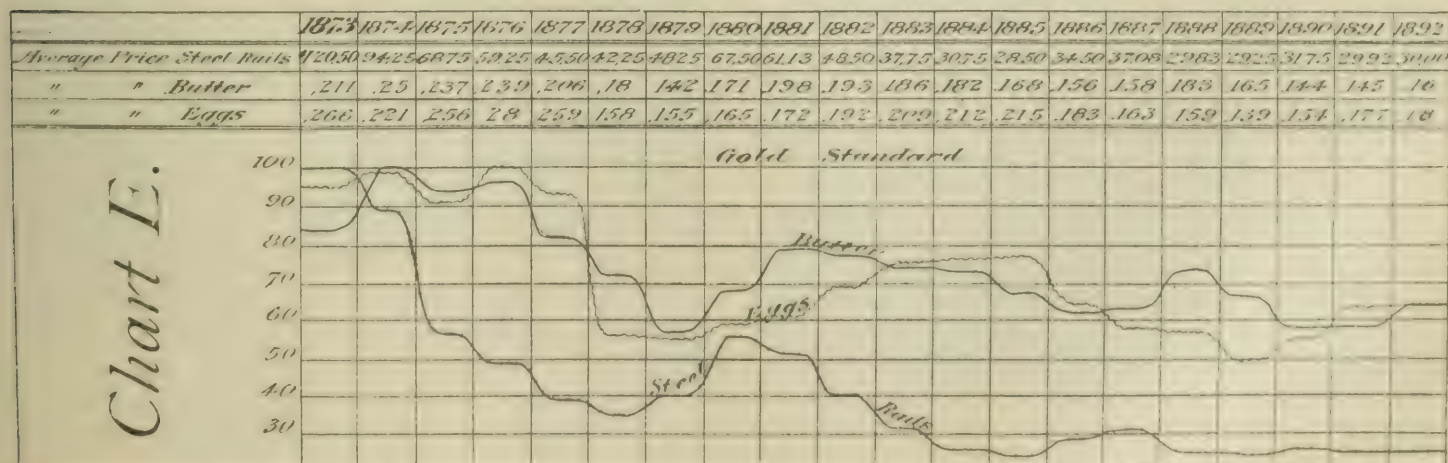 1873 1874 1875 1876 1877 1878 1879 1880 1881 1882 1883 1884 1885 1886 1887 1888 1889 1890 1891 1892
Average Price Steel Rails $120.50 94.25 68.75 59.25 45.50 42.25 48.25 67.50 61.13 48.50 37.75 30.75 28.50 34.50 37.08 29.83 29.25 31.75 29.92 30.00
" " Butter .211 .25 .237 .239 .206 .18 .142 .171 .198 .193 .186 .182 .168 .156 .158 .183 .165 .144 .145 .16
" " Eggs .266 .221 .256 .28 .259 .158 .155 .165 .172 .192 .209 .212 .215 .183 .163 .159 .139 .154 .177 .18
Chart E.
Gold Standard
100
90
80
70
60
50
40
30
Butter
Eggs
Steel Rails